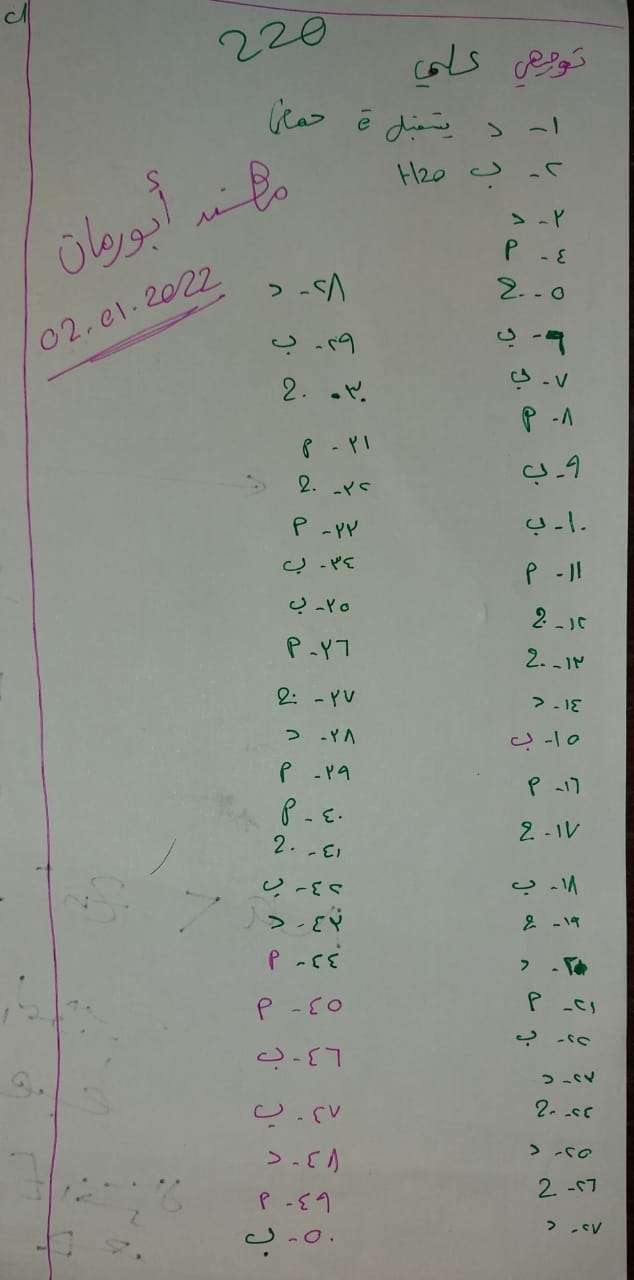 220
توجيهي علمي
١- د يتقبل ē
٢- ب H2O
٣- د
٤- أ
٥- ج
٦- ب
٧- ب
٨- أ
٩- ب
١٠- ب
١١- أ
١٢- ج
١٣- ج
١٤- د
١٥- ب
١٦- أ
١٧- ج
١٨- ب
١٩- ج
٢٠- د
٢١- أ
٢٢- ب
٢٣- د
٢٤- ج
٢٥- د
٢٦- ج
٢٧- د
مهند أبورمان
02.01.2022
٢٨- د
٢٩- ب
٣٠- ج
٣١- أ
٣٢- ج
٣٣- أ
٣٤- ب
٣٥- ب
٣٦- أ
٣٧- ج
٣٨- د
٣٩- أ
٤٠- أ
٤١- ج
٤٢- ب
٤٣- د
٤٤- أ
٤٥- أ
٤٦- ب
٤٧- ب
٤٨- د
٤٩- أ
٥٠- ب